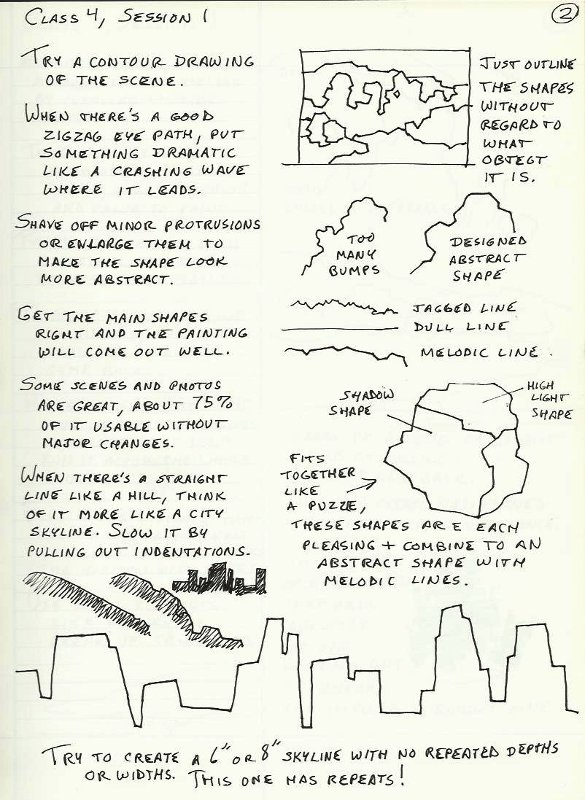 CLASS 4, SESSION 1
2
TRY A CONTOUR DRAWING
OF THE SCENE.
WHEN THERE'S A GOOD
ZIGZAG EYE PATH, PUT
SOMETHING DRAMATIC
LIKE A CRASHING WAVE
WHERE IT LEADS.
SHAVE OFF MINOR PROTRUSIONS
OR ENLARGE THEM TO
MAKE THE SHAPE LOOK
MORE ABSTRACT.
GET THE MAIN SHAPES
RIGHT AND THE PAINTING
WILL COME OUT WELL.
SOME SCENES AND PHOTOS
ARE GREAT, ABOUT 75%
OF IT USABLE WITHOUT
MAJOR CHANGES.
WHEN THERE'S A STRAIGHT
LINE LIKE A HILL, THINK
OF IT MORE LIKE A CITY
SKYLINE. SLOW IT BY
PULLING OUT INDENTATIONS.
JUST OUTLINE
THE SHAPES
WITHOUT
REGARD TO
WHAT
OBJECT
IT IS.
TOO
MANY
BUMPS
DESIGNED
ABSTRACT
SHAPE
JAGGED LINE
DULL LINE
MELODIC LINE.
SHADOW
SHAPE
HIGH
LIGHT
SHAPE
FITS
TOGETHER
LIKE
A PUZZE,
THESE SHAPES ARE EACH
PLEASING + COMBINE TO AN
ABSTRACT SHAPE WITH
MELODIC LINES.
TRY TO CREATE A 6" OR 8" SKYLINE WITH NO REPEATED DEPTHS
OR WIDTHS. THIS ONE HAS REPEATS!